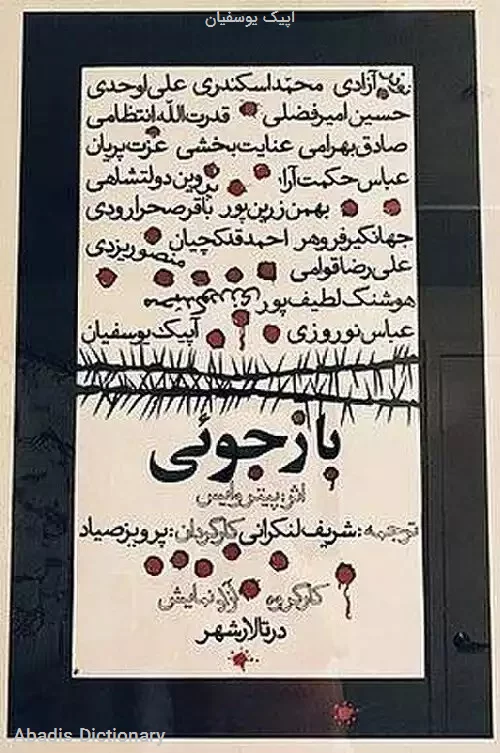 اپیک یوسفیان
آزادی محمّد اسکندری علی اوحدی
حسین امیرفضلی قدرت‌اللّه انتظامی
صادق بهرامی عنایت بخشی عزت پریان
عباس حکمت‌آرا پروین دولتشاهی
بهمن زرین‌پور باقر صحرارودی
جهانگیر فروهر احمد قدکچیان
منصور یزدی
علی رضا قوامی
هوشنگ لطیف‌پور
عباس نوروزی آپیک یوسفیان
بازجوئی
اثر: پیتر وایس
ترجمه: شریف لنکرانی کارگردان: پرویز صیاد
کار گروه آزاد نمایش
در تالار شهر
Abadis Dictionary